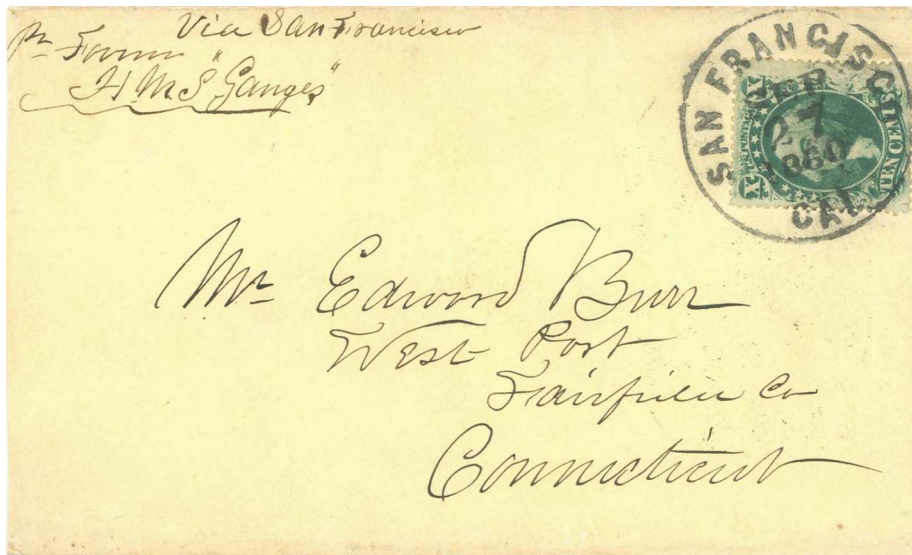 Via San Francisco
Pr Favor
H M S "Ganges"
SAN FRANCISCO
7
1860
CAL
U.S. POSTAGE
X
TEN CENTS
Mr Edward Burr
West Port
Fairfield Co
Connecticut